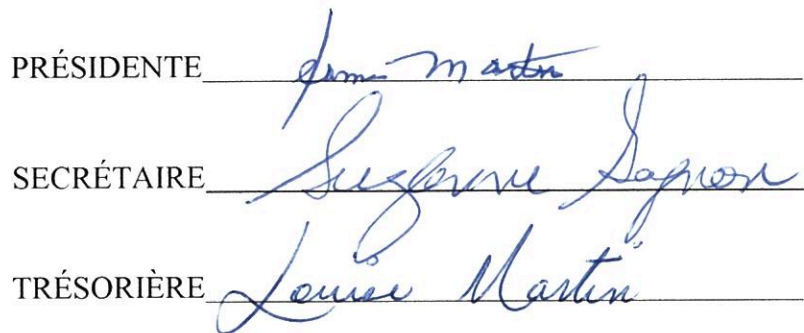 PRÉSIDENTE Martin
SECRÉTAIRE Suzanne Gagnon
TRÉSORIÈRE Louise Martin